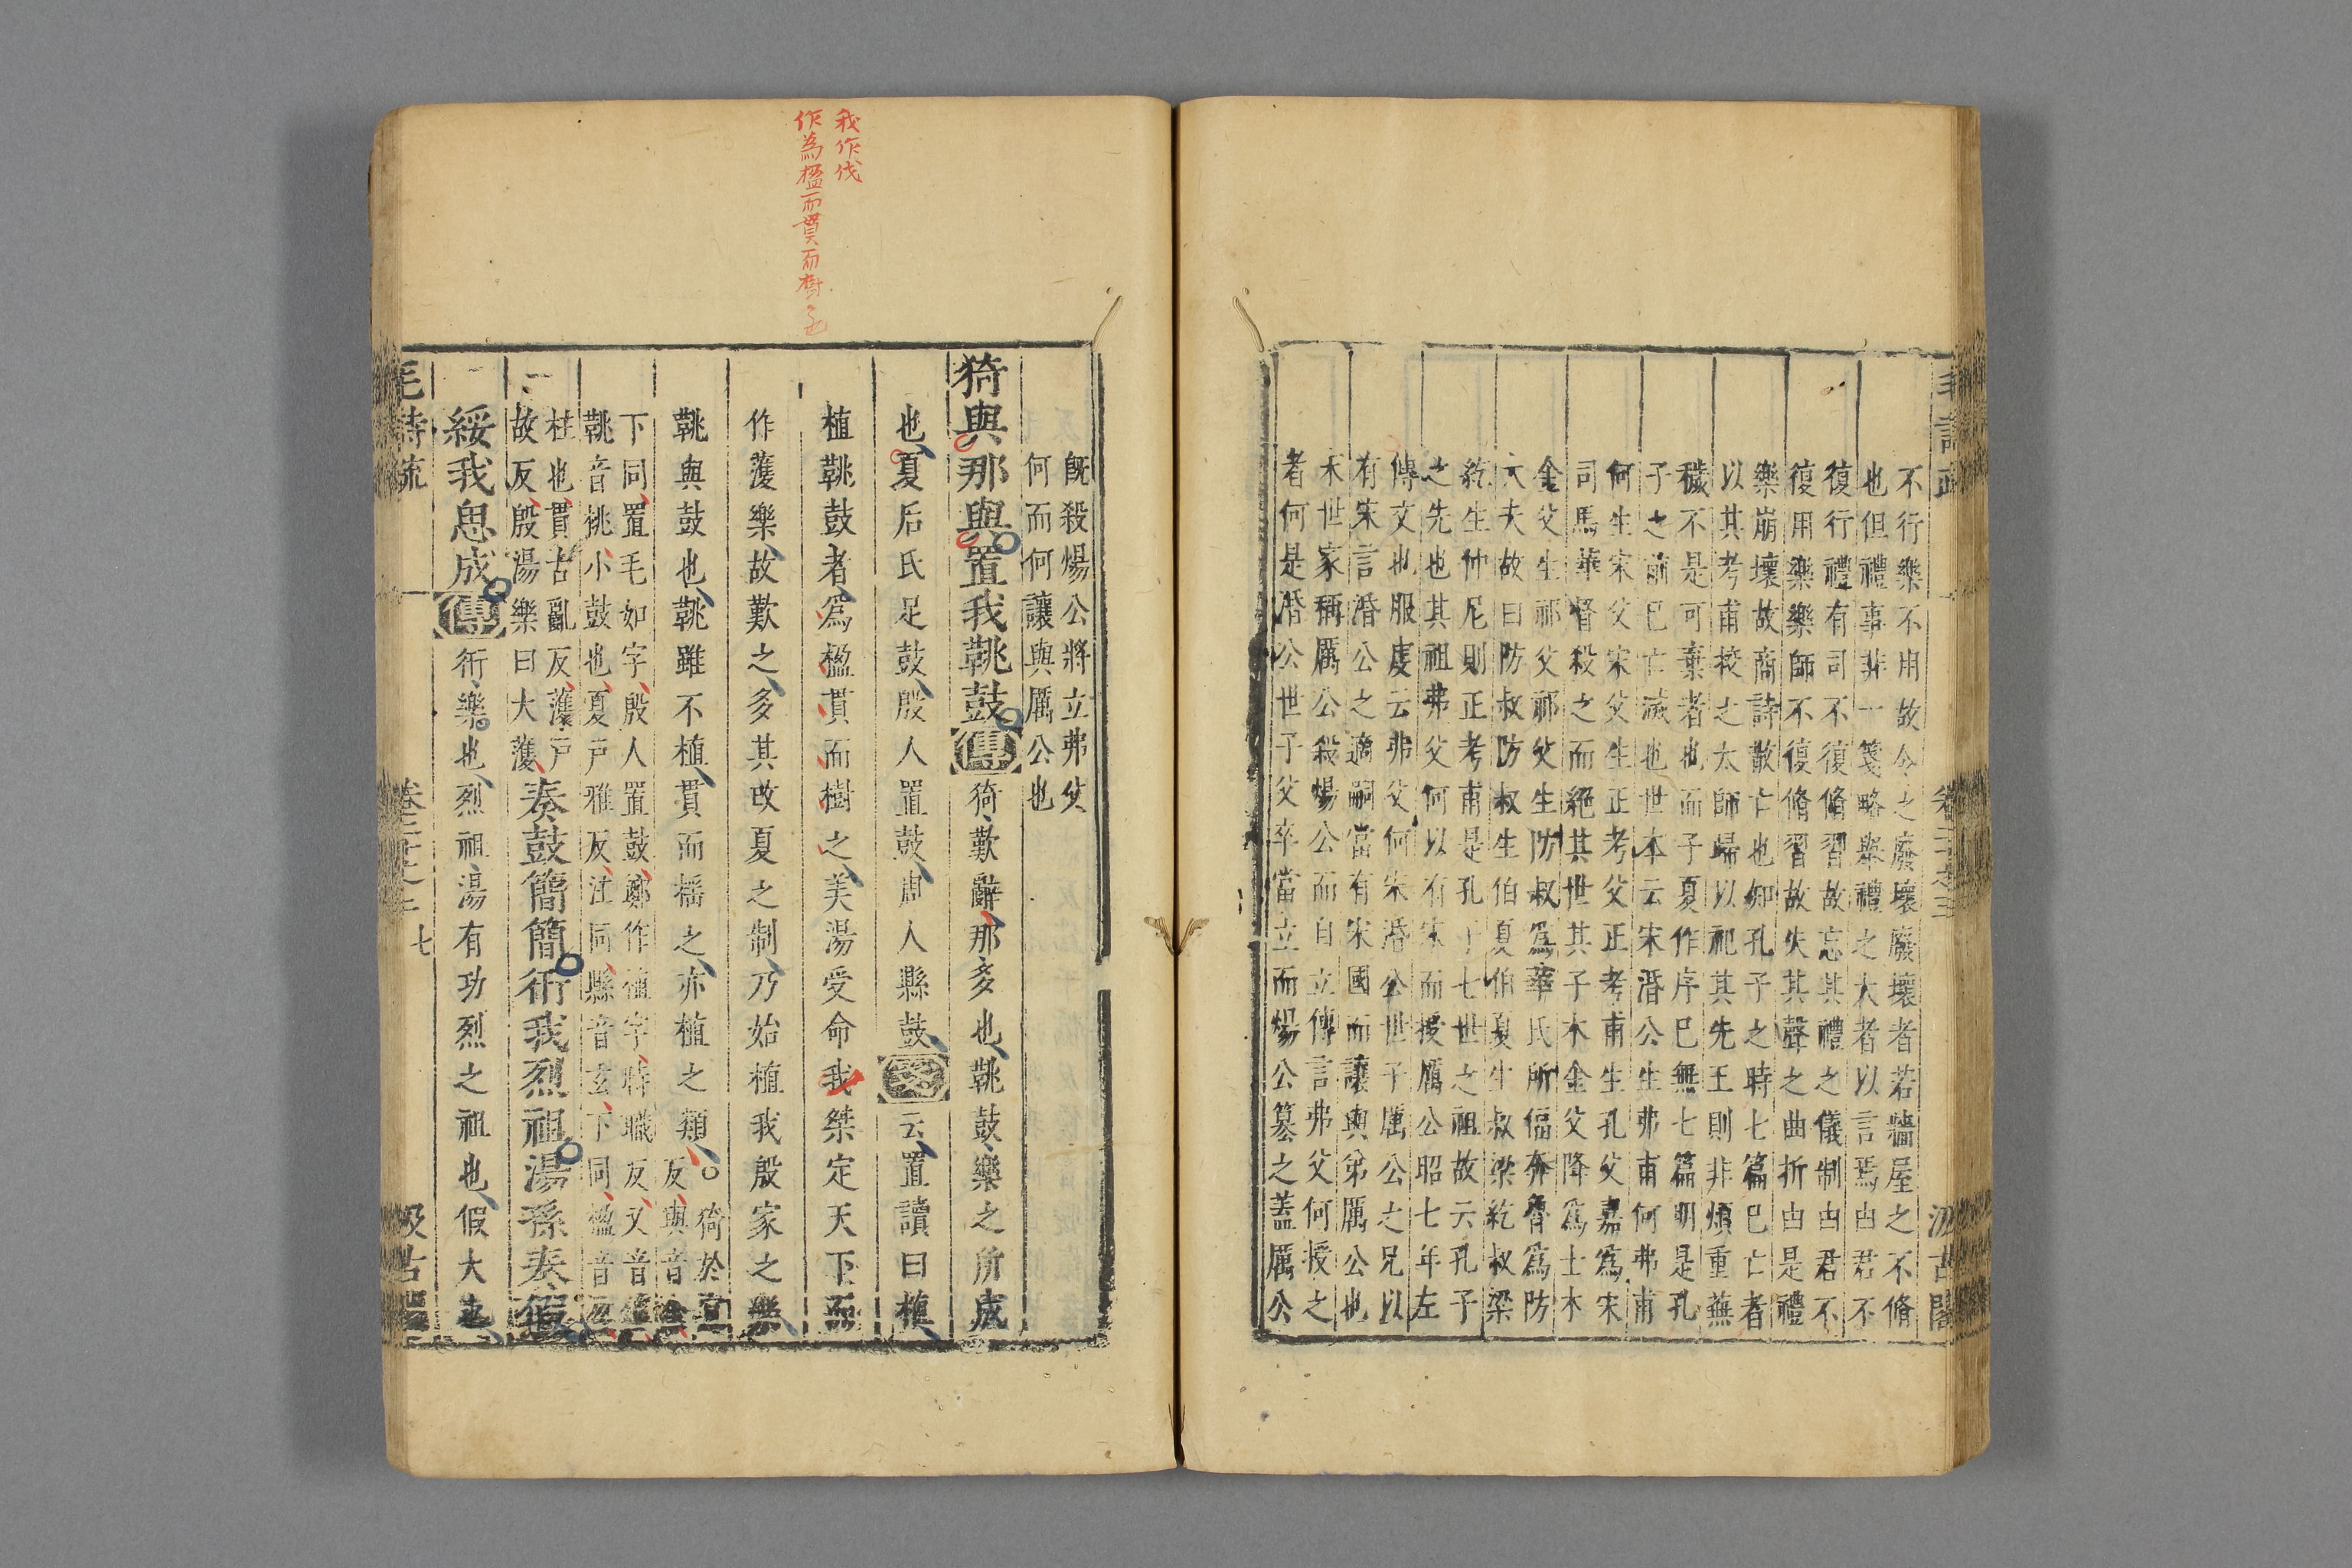 毛詩疏
卷二十之三
汲古閣
不行樂不用故令之廢壞廢壞者若牆屋之不脩
也但禮事非一箋略舉禮之大者以言焉由君不
復行禮有司不復脩習故忘其禮之儀制由君不
復用樂樂師不復脩習故失其聲之曲折由是禮
樂崩壞故商詩散亡也知孔子之時七篇已亡者
以其考甫校之太師歸以祀其先王則非煩重蕪
穢不是可棄者也而子夏作序已無七篇明是孔
子之前已亡滅也世本云宋湣公生弗甫何弗甫
何生宋父宋父生正考父正考甫生孔父嘉爲宋
司馬華督殺之而絕其世其子木金父降爲士木
金父生祁父祁父生防叔爲華氏所偪奔魯爲防
大夫故曰防叔防叔生伯夏伯夏生叔梁紇叔梁
紇生仲尼則正考甫是孔子七世之祖故云孔子
之先也其祖弗父何以有宋而授厲公昭七年左
傳文也服虔云弗父何宋湣公世子厲公之兄以
有宋言湣公之適嗣當有宋國而讓與弟厲公也
宋世家稱厲公殺煬公而自立傳言弗父何授之
者何是湣公世子父卒當立而煬公篡之蓋厲公
旣殺煬公將立弗父
何而何讓與厲公也
猗與那與置我鞉鼓傳猗歎辭那多也鞉鼓樂之所成
也夏后氏足鼓殷人置鼓周人縣鼓箋云置讀曰植
植鞉鼓者爲楹貫而樹之美湯受命我桀定天下而
作濩樂故歎之多其改夏之制乃始植我殷家之樂
鞉與鼓也鞉雖不植貫而搖之亦植之類○猗於宜
反與音余
下同置毛如字殷人置鼓鄭作植字時職反又音値
鞉音桃小鼓也夏戸雅反注同縣音玄下同楹音盈
柱也貫古亂反濩戸
故反殷湯樂曰大濩
奏鼓簡簡衎我烈祖湯孫奏假
綏我思成傳衎樂也烈祖湯有功烈之祖也假大也
毛詩疏
卷二十之三
七
汲古閣
我作伐
作為楹而貫而樹之